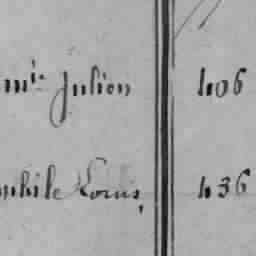 mie Julien 406
nhile Louis, 436